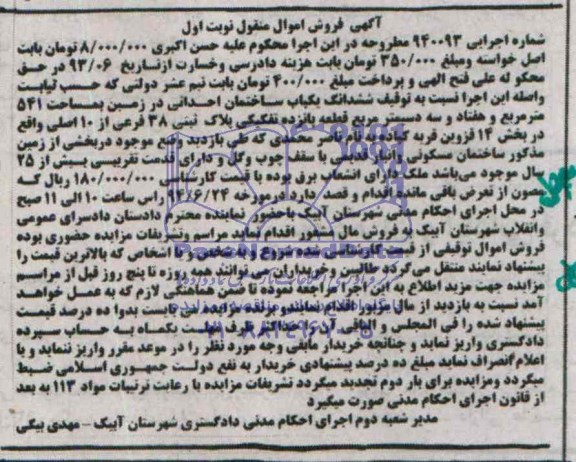 آگهی فروش اموال منقول نوبت اول
شماره اجرایی ۹۴۰۰۹۳ مطروحه در این اجرا محکوم علیه حسن اکبری ۸/۰۰۰/۰۰۰ تومان بابت
اصل خواسته ومبلغ ۳۵۰/۰۰۰ تومان بابت هزینه دادرسی وخسارت ازتاریخ ۹۳/۰۶ در حق
محکو له علی فتح الهی و پرداخت مبلغ ۴۰۰/۰۰۰ تومان بابت نیم عشر دولتی که حسب نیابت
واصله این اجرا نسبت به توقیف ششدانگ یکباب ساختمان احداثی در زمین بمساحت ۵۴۱
مترمربع و هفتاد و سه دسیمتر مربع قطعه پانزده تفکیکی پلاک ثبتی ۳۸ فرعی از ۱۰ اصلی واقع
در بخش ۱۴ قزوین قریه ناصر محمدی که طی بازدید وضع موجود دربخشی از زمین
مذکور ساختمان مسکونی وانبار قدیمی با سقف چوب وگل و دارای قدمت تقریبی بیش از ۲۵
سال موجود می‌باشد ملک دارای انشعاب برق بوده با قیمت کارشناسی ۱۸۰/۰۰۰/۰۰۰ ریال که
مصون از تعرض باقی مانده اقدام و قصد دارد درمورخه ۹۴/۶/۲۴ راس ساعت ۱۰ الی ۱۱ صبح
در محل اجرای احکام مدنی شهرستان آبیک باحضور نماینده محترم دادستان دادسرای عمومی
وانقلاب شهرستان آبیک به فروش مال مذکور اقدام نماید مراسم وتشریفات مزایده حضوری بوده
فروش اموال توقیفی از قیمت کارشناسی شده شروع و به شخص و یا اشخاص که بالاترین قیمت را
پیشنهاد نمایند منتقل می‌گردد طالبین وخریداران می توانند همه روزه تا پنج روز قبل از مراسم
مزایده جهت مزید اطلاع به این اجرا مراجعه نموده تا ضمن هماهنگی لازم که به عمل خواهد
آمد نسبت به بازدید از مال مزبور اقدام نمایند برنده مزایده می بایست بدوا ده درصد قیمت
پیشنهاد شده را فی المجلس و الباقی آن را حداکثر ظرف مهلت یکماه به حساب سپرده
دادگستری واریز نماید و چنانچه خریدار مابقی وجه مورد نظر را در موعد مقرر واریز ننماید و یا
اعلام انصراف نماید مبلغ ده درصد پیشنهادی خریدار به نفع دولت جمهوری اسلامی ضبط
میگردد ومزایده برای بار دوم تجدید میگردد تشریفات مزایده با رعایت ترتیبات مواد ۱۱۳ به بعد
از قانون اجرای احکام مدنی صورت میگیرد
مدیر شعبه دوم اجرای احکام مدنی دادگستری شهرستان آبیک – مهدی بیگی